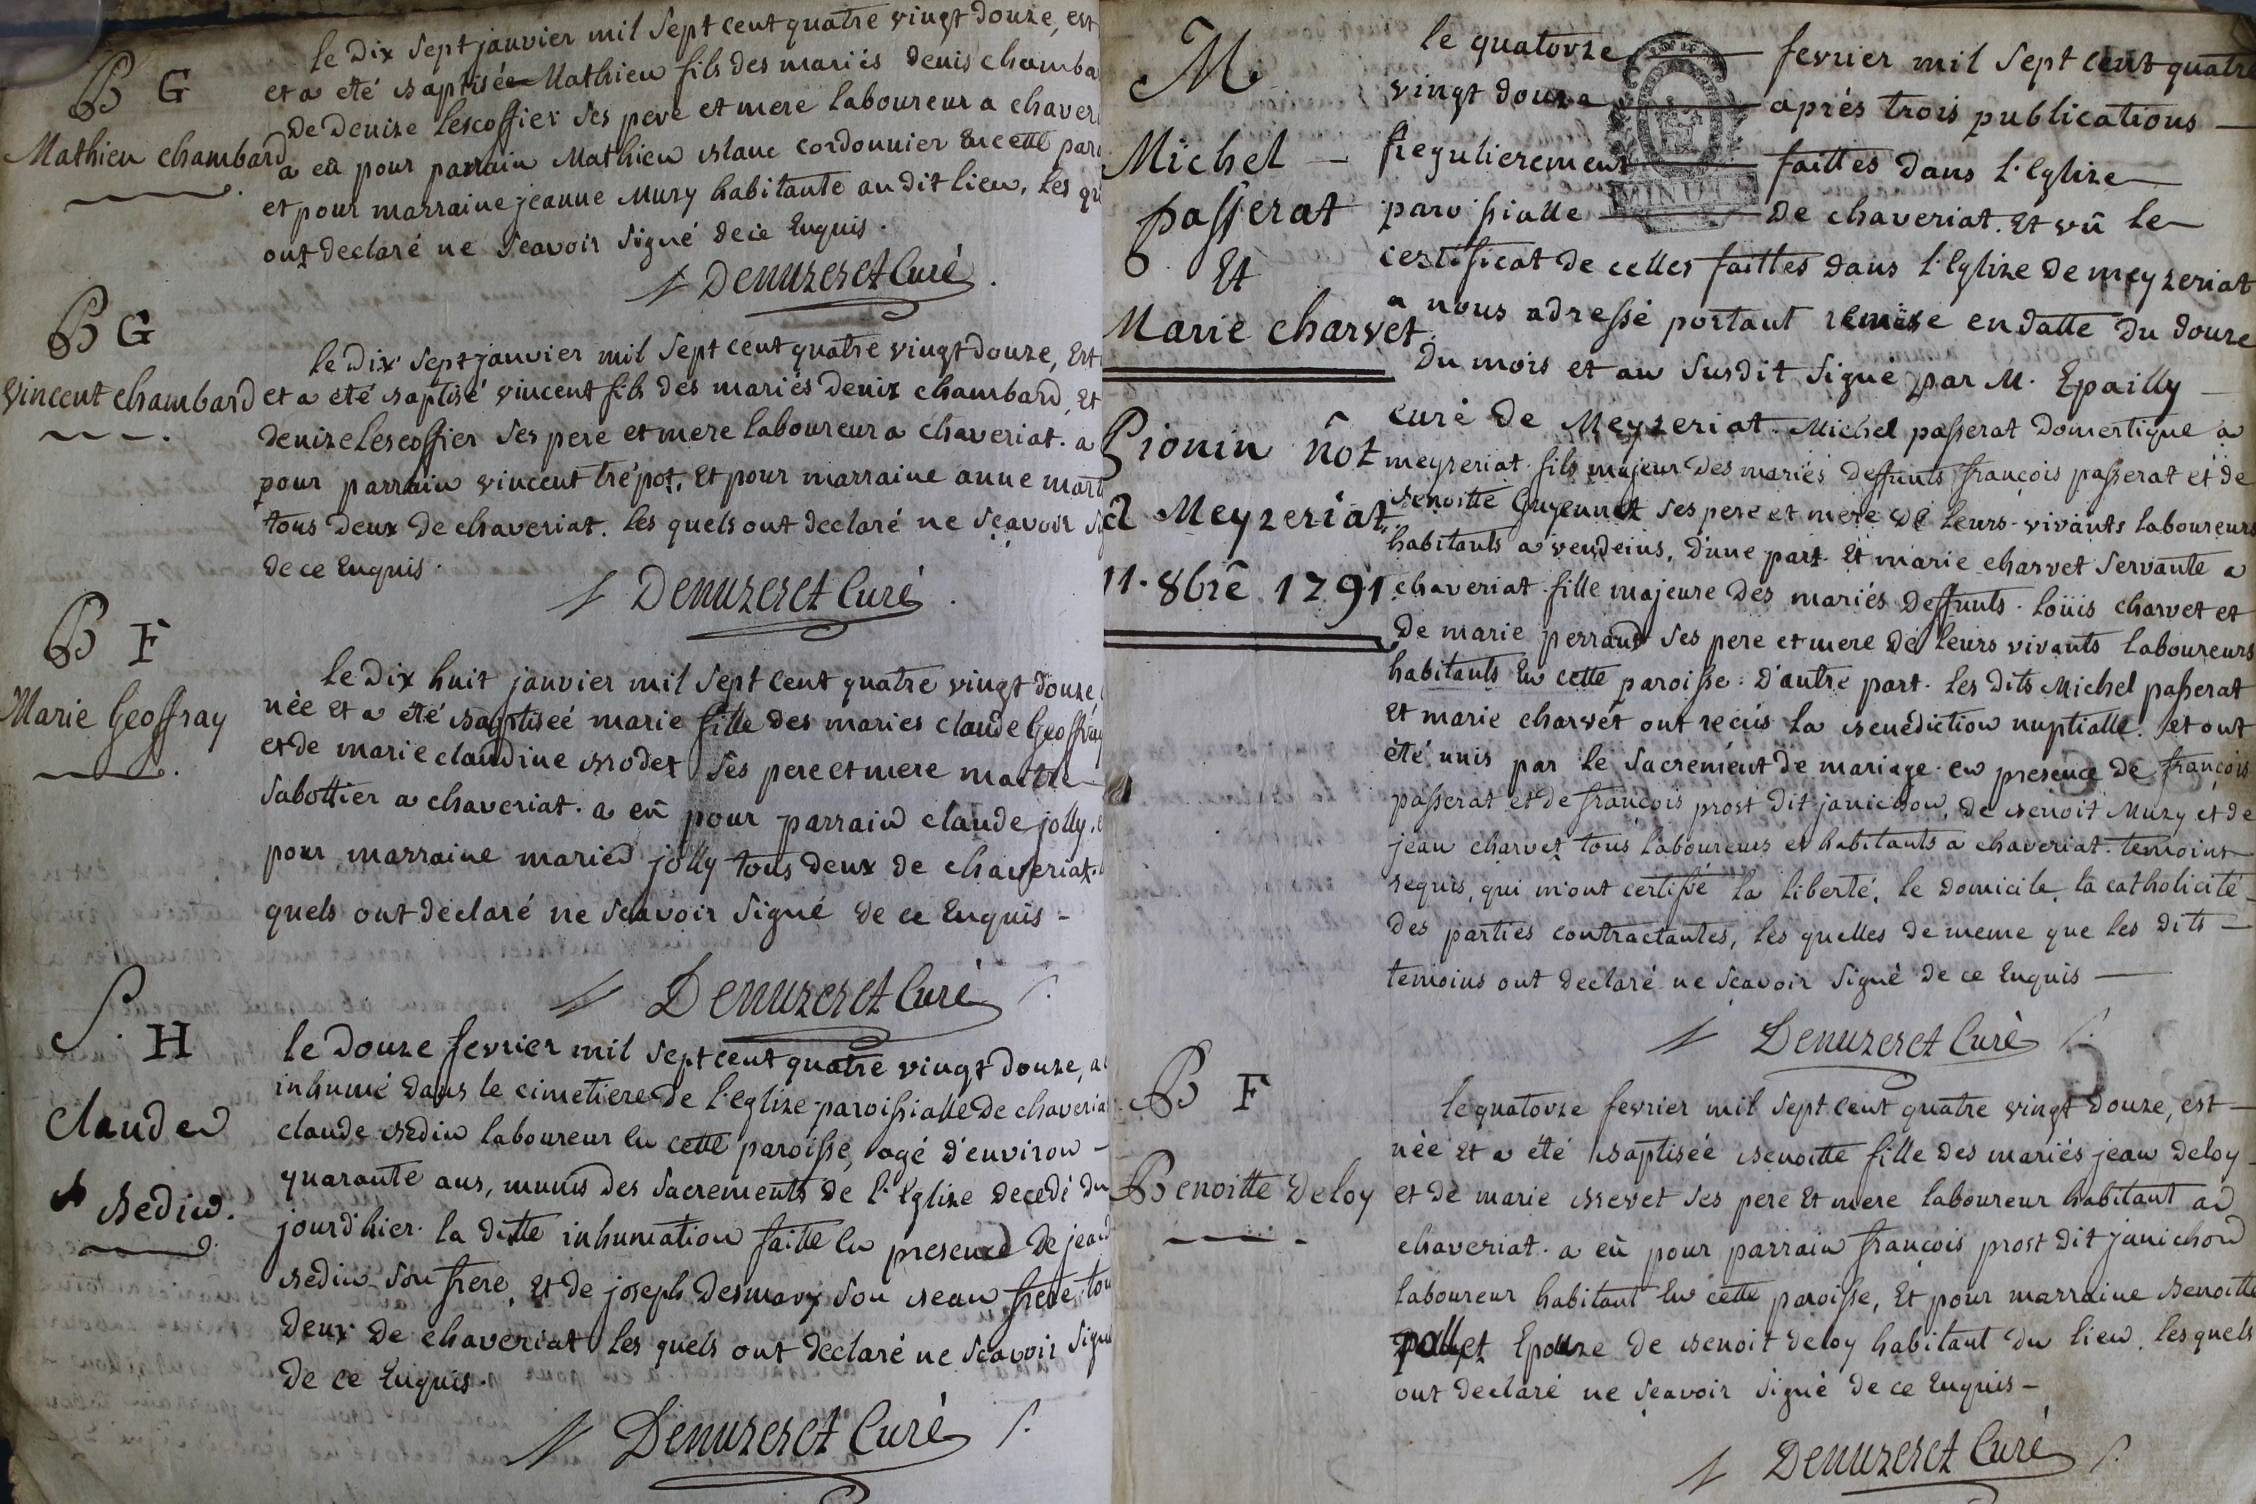 B G
Mathieu chambard
le dix sept janvier mil sept cent quatre vingt douze, est
et a eté baptisée Mathieu fils des mariés denis chamba
de denize lescoffier ses pere et mere laboureur a chaver
a eû pour parrain Mathieu blanc cordonnier en cette paro
et pour marraine jeanne Muzy habitante au dit lieu, les qu
ont declaré ne scavoir signé de ce Enquis.
Denuzeret Curé
B G
vincent chambard
le dix sept janvier mil sept cent quatre vingt douze, Est
et a eté baptisé vincent fils des mariés denix chambard, et
denize lescoffier ses pere et mere laboureur a chaveriat. a
pour parrain vincent trépot, Et pour marraine anne mart
tous deux de chaveriat. les quels ont declaré ne sçavoir si
de ce Enquis.
Denuzeret Curé
B F
Marie Geoffray
le dix huit janvier mil sept cent quatre vingt douze
née et a été baptiseé marie fille des maries claude Geoffray
et de marie claudine brodet ses pere et mere maitre
sabottier a chaveriat. a eû pour parrain claude jolly.
pour marraine marie jolly tous deux de chaveriat.
quels ont déclaré ne scavoir signé de ce Enquis -
Denuzeret Curé
S. H
Claude
bedin.
le douze fevrier mil sept cent quatre vingt douze, a
inhumé dans le cimetiere de l'eglize paroissialle de chaveria
claude bedin laboureur en cette paroisse, agé d'environ -
quarante ans, munis des sacrements de l'Eglize decedé du
jourd'hier. la ditte inhumation faitte en presence de jean
bedin son frere, et de joseph desmary son beau frere tou
deux de chaveriat les quels ont declaré ne scavoir signé
de ce Enquis.
Denuzeret Curé
M.
Michel -
passerat
Et
Marie charvet.
Pionin nõt
a Meyzeriat,
11. 8bre 1791.
le quatorze fevrier mil sept cent quatre
vingt douze après trois publications -
Regulierement faittes dans l'Eglize
paroissialle de chaveriat. Et vû le
MINUTE
certificat de celles faittes dans l'Eglize de meyzeriat
a nous adressé portant remise en datte du douze
du mois et an susdit signé par M. Epailly
curé de Meyzeriat. Michel passerat domestique a
meyzeriat. fils majeur des mariés deffunts françois passerat et de
benoitte Guyennet ses pere et mere de leurs vivants laboureurs
habitants a vendeins, d'une part. Et marie charvet servante a
chaveriat. fille majeure des mariés deffunts. loüis charvet et
de marie perraud ses pere et mere de leurs vivants laboureurs
habitants En cette paroisse. d'autre part. les dits Michel passerat
et marie charvet ont reçûs la bénédiction nuptialle. et ont
été unis par le sacrement de mariage. en presence de françois
passerat et de françois prost dit janichon, de benoit Muzy et de
jean charvet tous laboureurs et habitants a chaveriat. temoins
requis, qui m'ont certifié la liberté, le domicile, la catholicité
des parties contractantes, les quelles de meme que les dits -
temoins ont declaré ne sçavoir signé de ce Enquis
Denuzeret Curé
B F
Benoitte Deloy
le quatorze fevrier mil sept cent quatre vingt douze, est -
née et a été baptisée benoitte fille des mariés jean deloy
et de marie brevet ses pere Et mere laboureur habitant a
chaveriat. a eû pour parrain françois prost dit janichon
laboureur habitant En cette paroisse, Et pour marraine benoitte
pallet Epouze de benoit deloy habitant du lieu. les quels
ont declaré ne sçavoir signé de ce Enquis -
Denuzeret Curé